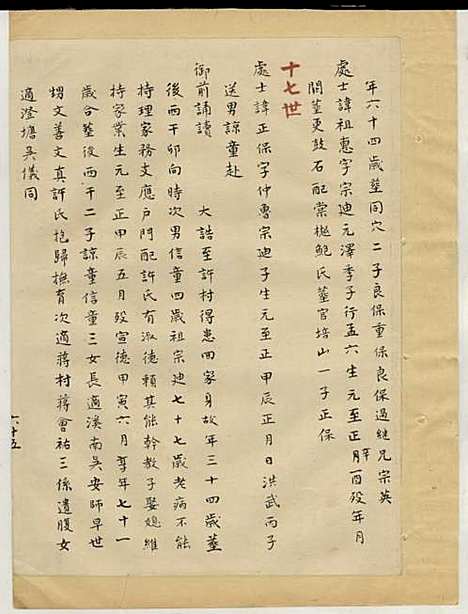 年六十四歲塟同穴二子良保重保良保過繼兄宗英
處士諱祖惠字宗迪元澤季子行孟六生元至正酉歿年月
閭塟更鼓石配棠樾鮑氏塟官培山一子正保
十七世
處士諱正保字仲魯宗迪子生元至正甲辰正月日洪武丙子
送男諒童赴
御前誦讀 大誥至許村得患回家身故年三十四歲塟
後西干卯向時次男信童四歲祖宗迪七十七歲老病不能
持理家務支應戶門配許氏有淑德賴其能幹教子娶媳維
持家業生元至正甲辰五月歿宣德甲寅六月享年七十一
歲合塟後西干二子諒童信童三女長適溪南吳安師早世
甥文善文真許氏抱歸撫育次適蔣村蔣會祐三係遺腹女
適澄塘吳儀同
六十五